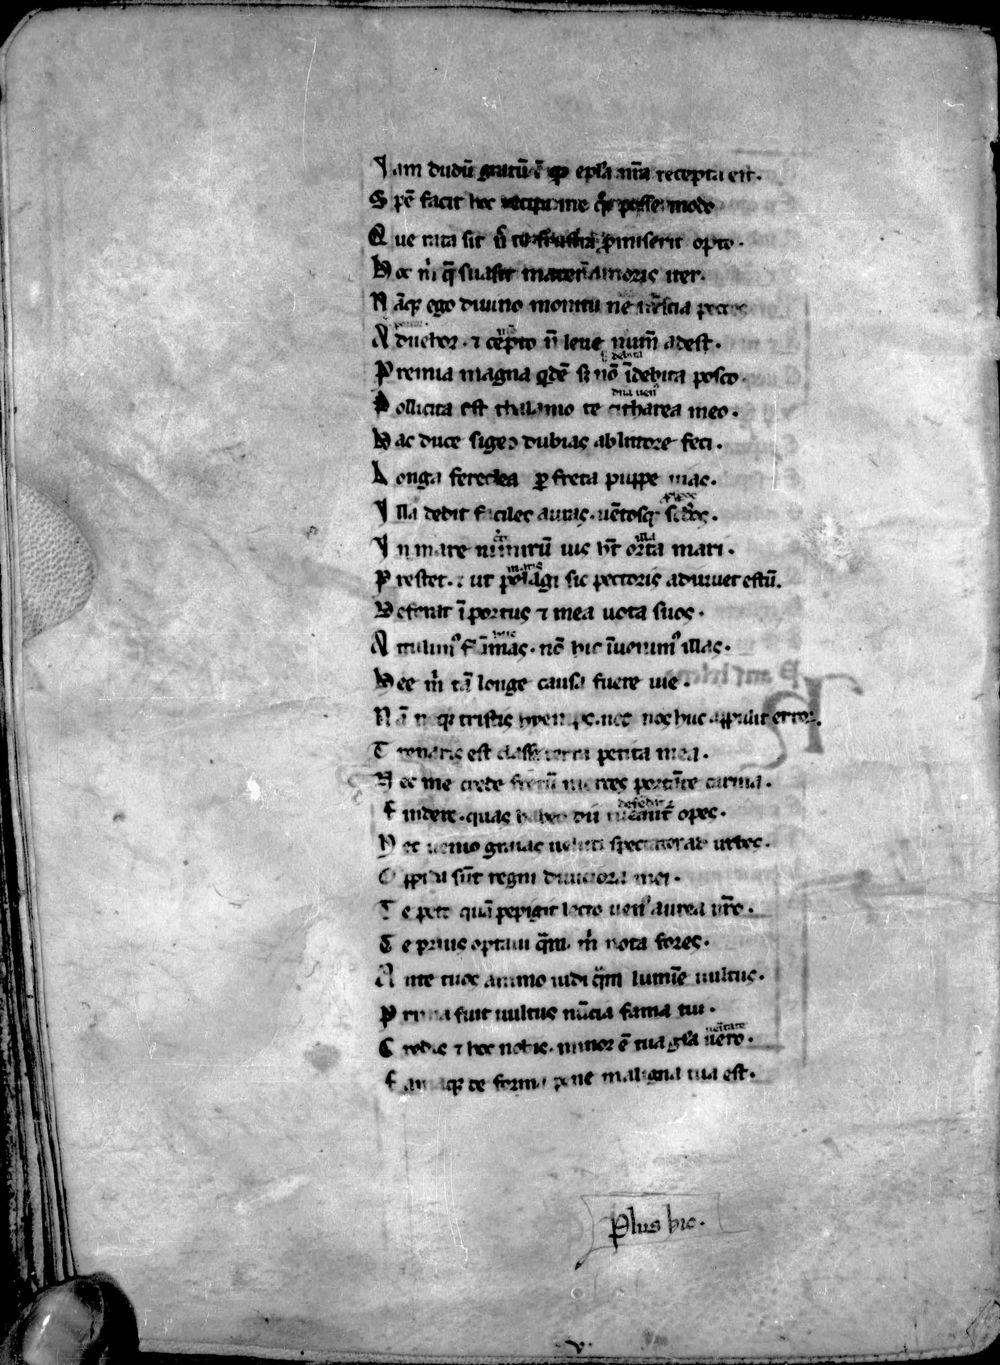 Iam dudū gratū ē qđ epła nr̄a recepta est.
Spē facit hoc recipi me q̊ posse modo
Que rata sit n̄ te frustra ꝓmiserit opto.
Hoc m̊ q̄ suasit mater amoris iter.
Nāq; ego diuino monitu ne nescia pecces
Aduehor. ⁊ cepto n̄ leue num̄ adest.
Premia magna qdē sꝫ nō īdebita posco.
s. debita
Pollicita est thalamo te citharea meo.
dn̄a uen
Hac duce sigeo dubias ab littore feci.
Longa fereclea ꝑ freta puppe uias.
Illa dedit faciles auras. uētosq; sc̄dos.
In mare nimirū ius hꝫ orta mari.
Prestet. ⁊ ut pelagi sic pectoris adiuuet estū.
maris
Deferat ī portus ⁊ mea uota suos.
Attulim᾽ flāmas. nō hic īuenim᾽ illas.
huc
Hee m̊ tā longe causa fuere uie.
Nā neq; tristis hyemps. nec nos huc appulit error.
Tenaris est classi terra petita mea.
Nec me crede fretū merces portāte carina.
Findere. quas habeo dii tueant᾽ opes.
defendāt
Nec uenio graias ueluti spectator ad urbes.
Oppida sūt regni diuitiora mei.
Te peto quā pepigit lecto uen᾽ aurea nr̄o.
Te prius optaui q̄m m̊ nota fores.
Ante tuos animo uidi q̄m lumīe uultus.
Prima fuit uultus nūcia fama tui.
Credis ⁊ hoc nobis. minor ē tua gła uero.
ueritate
Famaq; de forma pene maligna tua est.
Plus hic.
v.